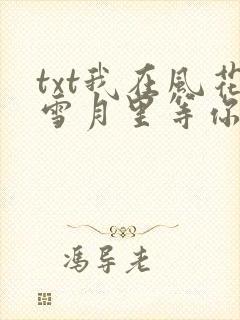 txt我在风花
雪月里等你
冯导老